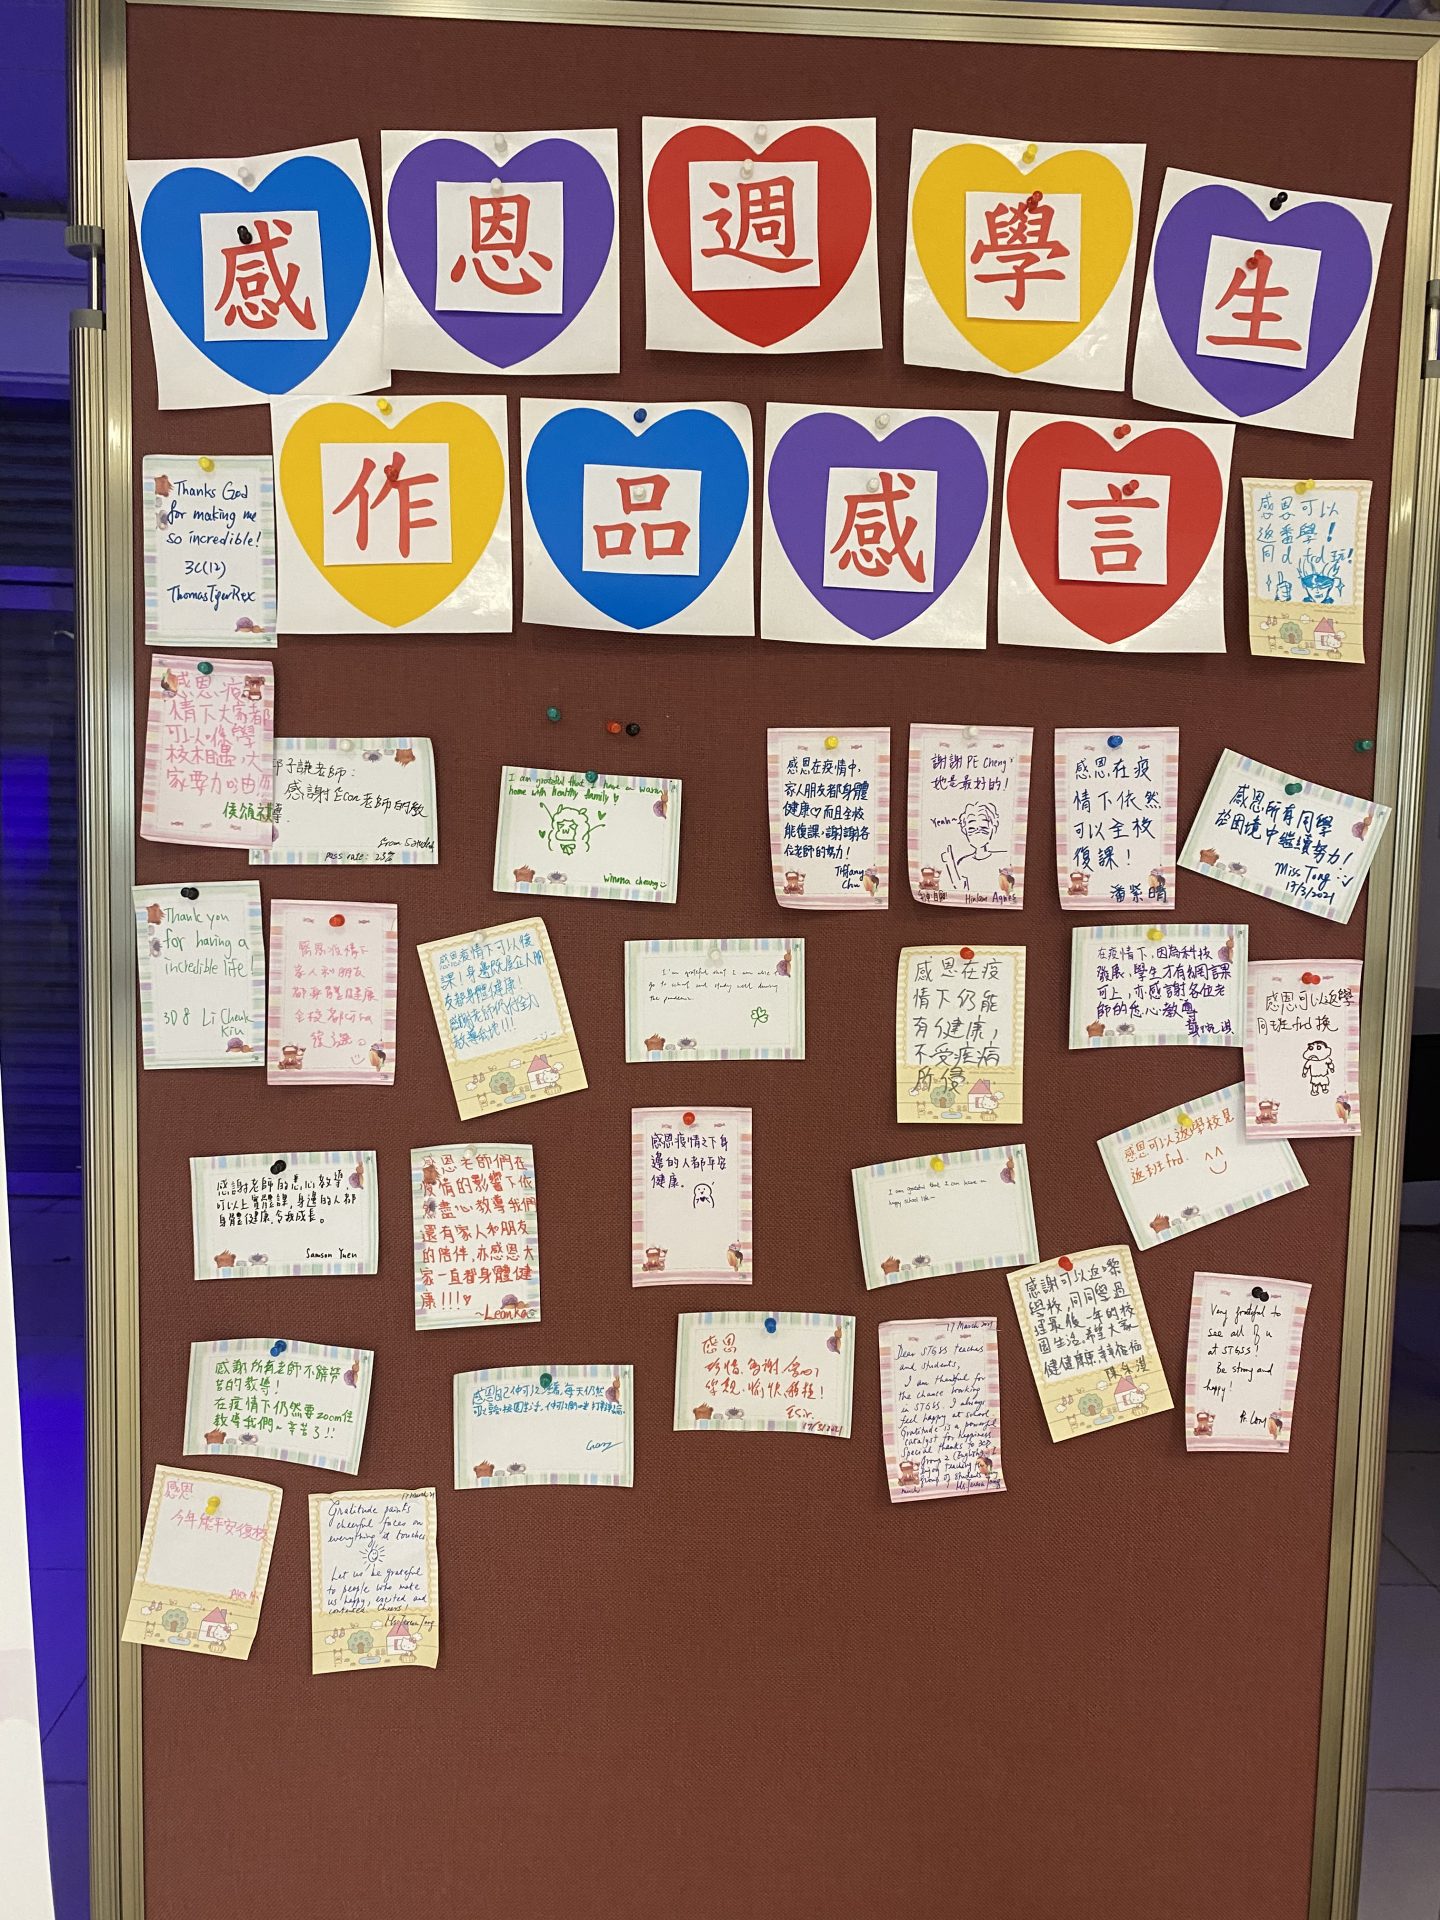 感恩週學生
作品感言
Thanks God
for making me
so incredible!
3C(12)
感恩可以
返番學！
同d frd玩！
感恩疫
情下大家都
可以係學
校相遇,大
家要力口由
老師：
感謝Econ老師的教
pass rate: 25%
I am grateful that I have a warm
home with healthy family
Winona cheung
感恩在疫情中，
家人朋友都身體
健康♡而且全校
能復課，謝謝各
位老師的努力！
Tiffany
Chu
謝謝PE Cheng，
他是最好的！
Yeah~
Agnes
感恩在疫
情下依然
可以全校
復課！
潘縈晴
感恩所有同學
於困境中繼續努力！
Miss Tong
17/3/2021
Thank you
for having a
incredible life!
3D 8 Li Cheuk
Kiu
疫情下
家人和朋友
都身體健康
全校都可以
感恩疫情下可以復
課！身邊既屋企人朋
友都身體健康！
感謝老師仍付全力
教導我地!!!
I am grateful that I am able to
go to school and study well during
the pandemic.
感恩在疫
情下仍能
有健康，
不受疾病
所侵
在疫情下，因為科技
發展，學生才有網課
可上，亦感謝各位老
師的悉心教導
感恩可以返學
同班frd換
感謝老師的悉心教導，
可以上實體課，身邊的人都
身體健康，令我成長。
Samson Yuen
感恩老師們在
疫情的影響下依
然盡心教導我們
還有家人和朋友
的陪伴，亦感恩大
家一直都身體健
康!!!♡
~Leanka
感恩疫情之下身
邊的人都平安
健康。
I am grateful that I can have a
happy school life~
感恩可以返學校見
返班frd.
感謝所有老師不辭勞
苦的教導！
在疫情下仍然要zoom住
教導我們~辛苦了!!
Gary
感恩
珍惜、感謝、
愉快
17/3/2021
17 March 2021
Dear STGSS teachers
and students,
I am thankful for
the chance working
in STGSS. I always
feel happy at school.
Gratitude is a powerful
catalyst for happiness.
Special thanks to 3CD
Group 2 (English). I
enjoy teaching this
group of students very
much
感謝可以返嚟
學校，同同學過
埋最後一年的校
園生活，希望大家
健健康康,幸幸福福
Very grateful to
see all of u
at STGSS!
Be strong and
happy!
感恩
今年能平安復校
17 March 21
Gratitude paints
cheerful faces on
everything it touches
Let us be grateful
to people who make
us happy, excited and
contented. Cheers!